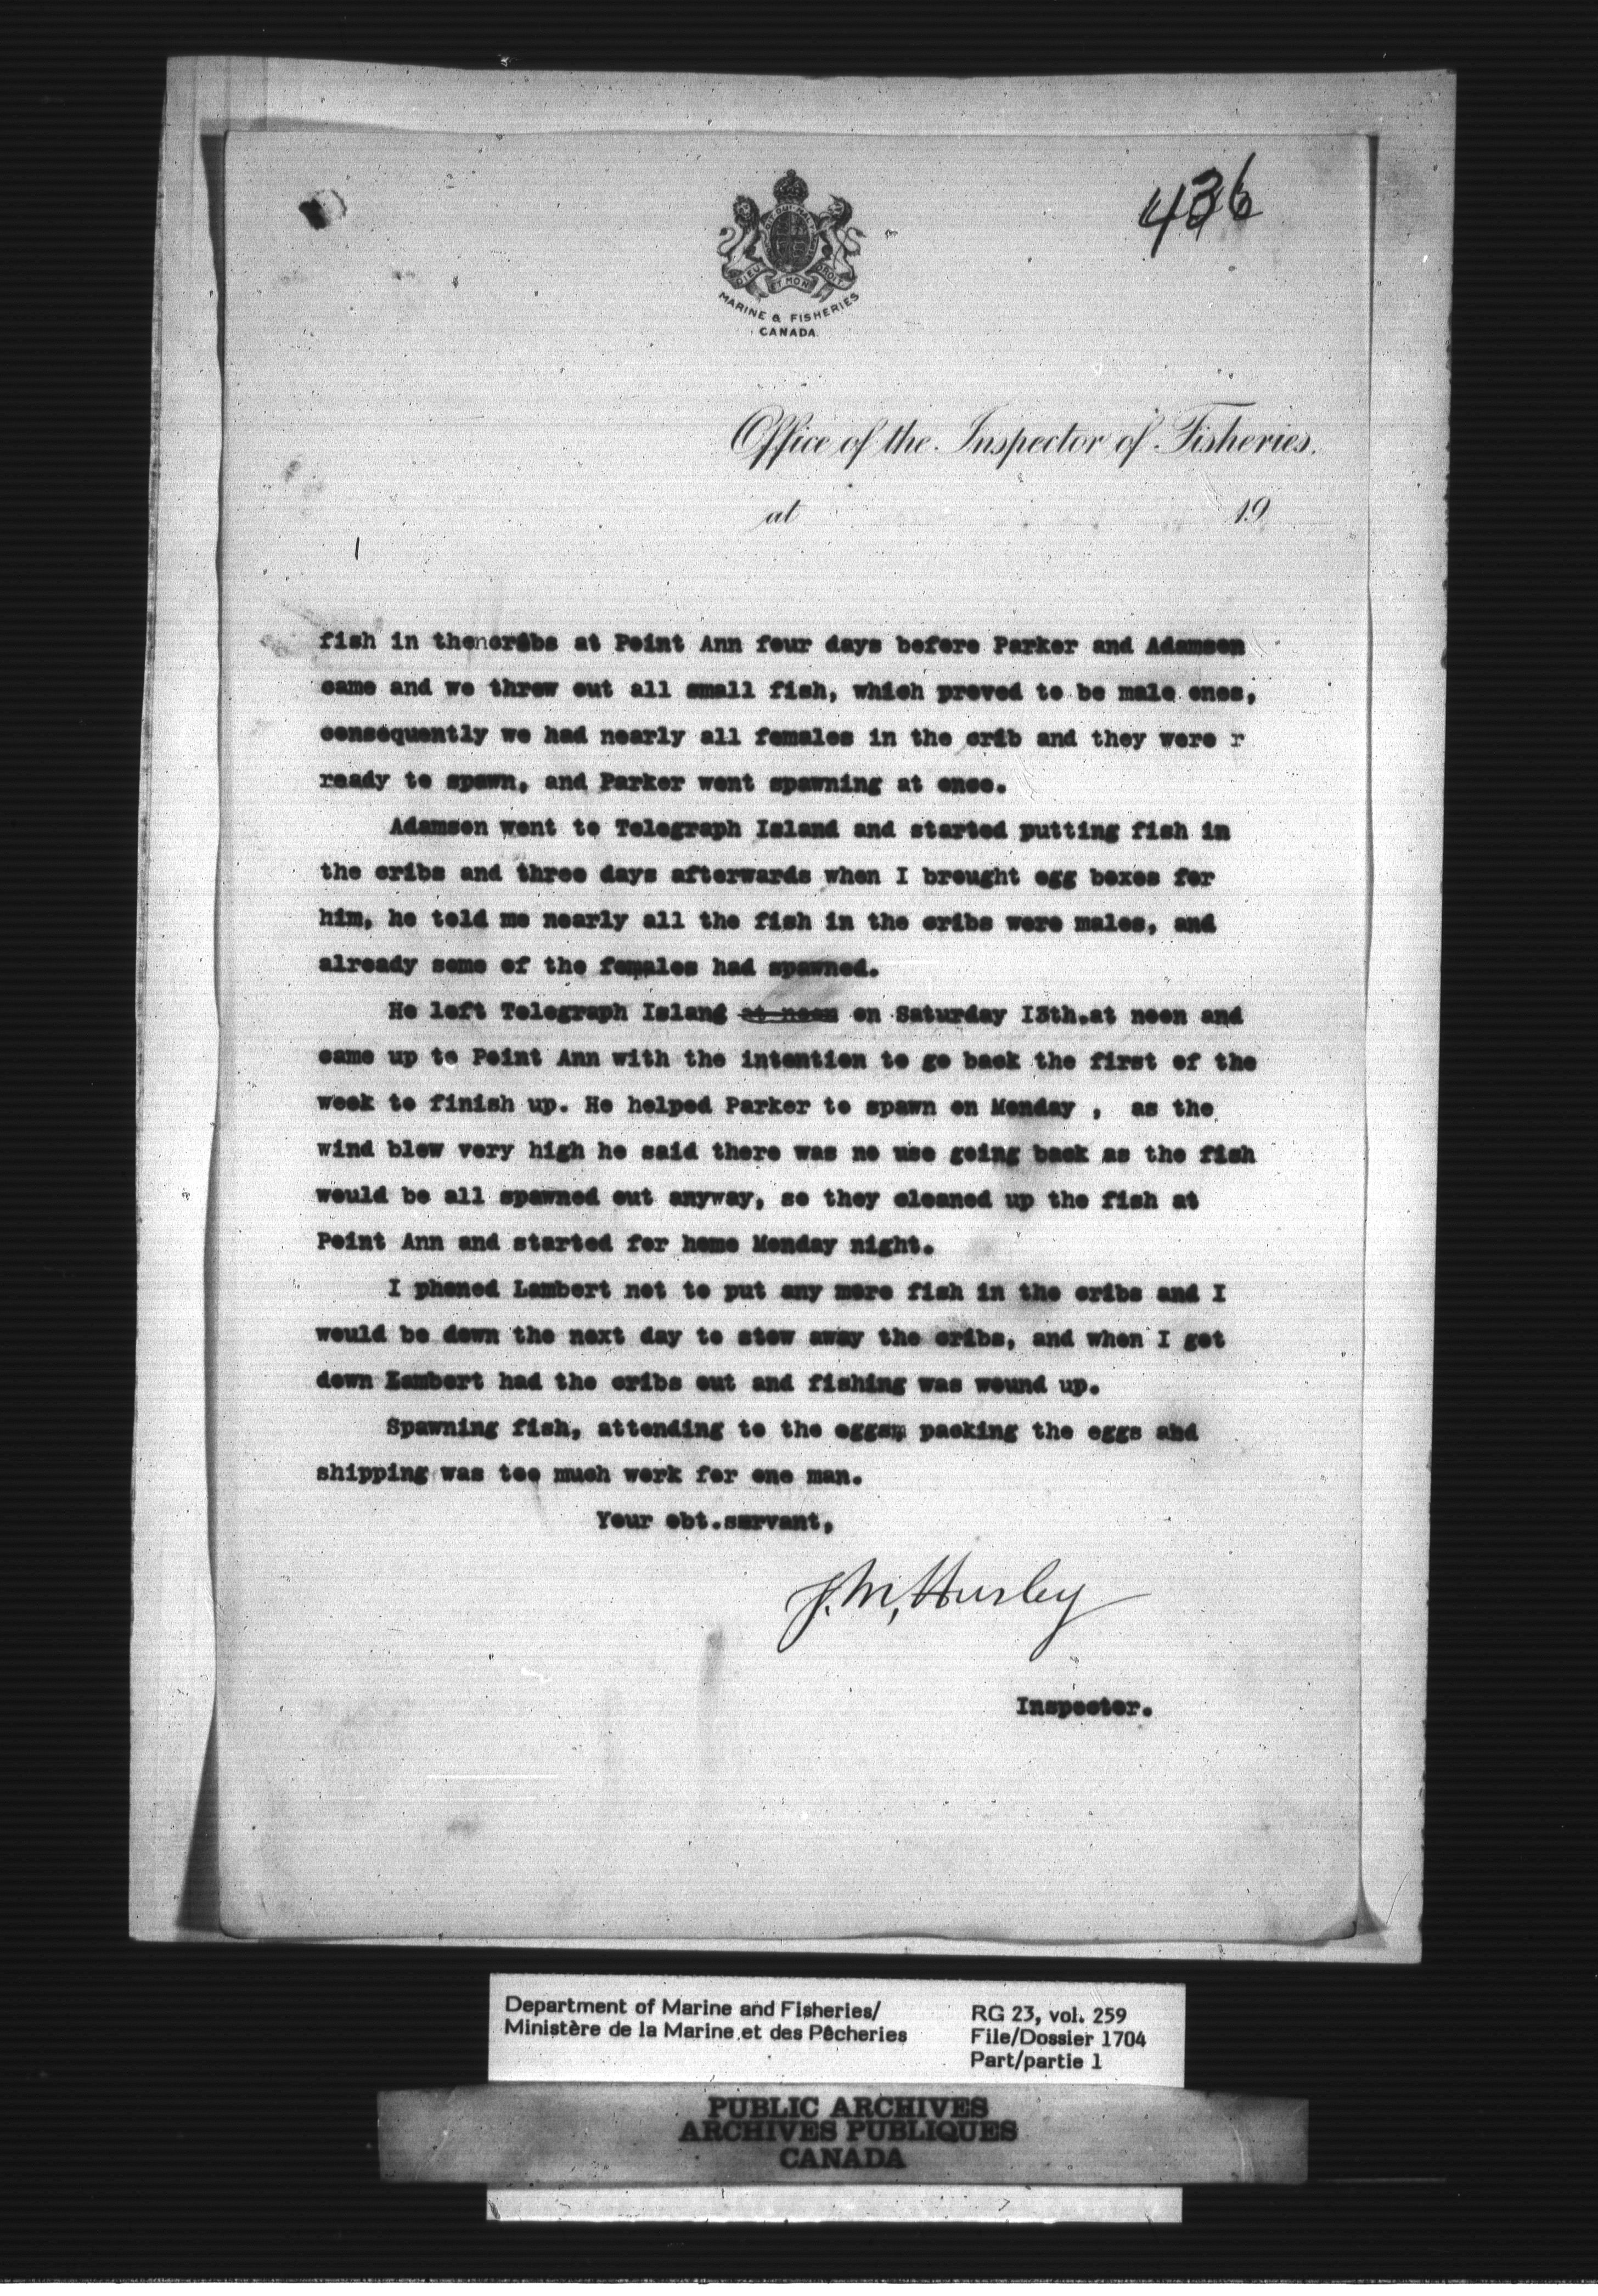 436
DIEU ET MON DROIT
MARINE & FISHERIES
CANADA.
Office of the Inspector of Fisheries.
at 19
fish in thencribs at Point Ann four days before Parker and Adamson
came and we threw out all small fish, which proved to be male ones,
consequently we had nearly all females in the crib and they were r
raady to spawn, and Parker went spawning at once.
Adamson went to Telegraph Island and started putting fish in
the cribs and three days afterwards when I brought egg boxes for
him, he told me nearly all the fish in the cribs were males, and
already some of the females had spawned.
He left Telegraph Island at noon on Saturday I3th.at noon and
came up to Point Ann with the intention to go back the first of the
week to finish up. He helped Parker to spawn on Monday , as the
wind blew very high he said there was no use going back as the fish
would be all spawned out anyway, so they cleaned up the fish at
Point Ann and started for home Monday night.
I phoned Lambert not to put any more fish in the cribs and I
would be down the next day to stow away the cribs, and when I got
down Lambert had the cribs out and fishing was wound up.
Spawning fish, attending to the eggsm packing the eggs and
shipping was too much work for one man.
Your obt.servant,
J. M. Hurley
Inspector.
Department of Marine and Fisheries/
Ministère de la Marine et des Pêcheries
RG 23, vol. 259
File/Dossier 1704
Part/partie 1
PUBLIC ARCHIVES
ARCHIVES PUBLIQUES
CANADA